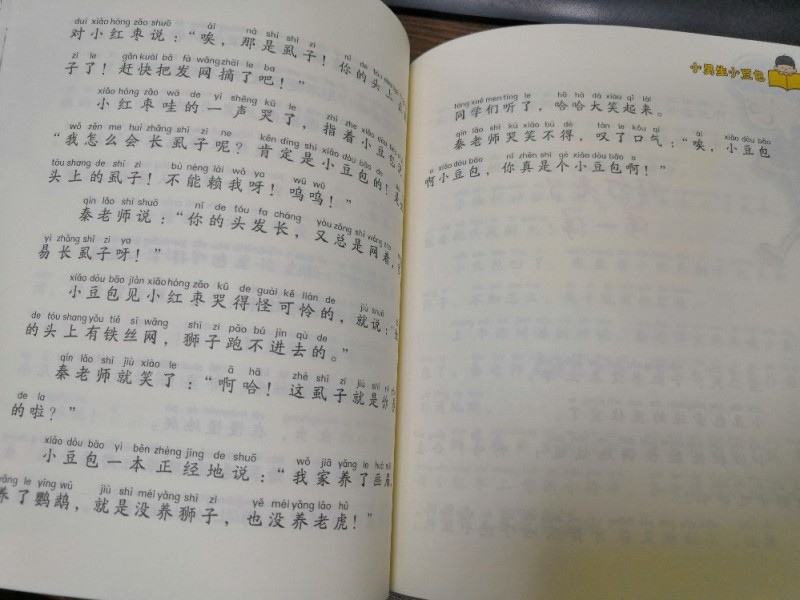 duì xiǎo hóng zǎo shuō āi nà shì shī zi nǐ de tóu shang
对小红枣说：“唉，那是虱子！你的头上
zi le gǎn kuài bǎ fà wǎng zhāi le ba
子了！赶快把发网摘了吧！”
xiǎo hóng zǎo wā de yì shēng kū le zhǐ zhe xiǎo dòu bāo
小红枣哇的一声哭了，指着小豆包
wǒ zěn me huì zhǎng shī zi ne kěn dìng shì xiǎo dòu bāo de
“我怎么会长虱子呢？肯定是小豆包的！
tóu shang de shī zi bù néng lài wǒ ya wū wū
头上的虱子！不能赖我呀！呜呜！”
qín lǎo shī shuō nǐ de tóu fa cháng yòu zǒng shì wǎng zhe
秦老师说：“你的头发长，又总是网着，
yì zhǎng shī zi ya
易长虱子呀！”
xiǎo dòu bāo jiàn xiǎo hóng zǎo kū de guài kě lián de jiù shuō
小豆包见小红枣哭得怪可怜的，就说：
de tóu shang yǒu tiě sī wǎng shī zi pǎo bú jìn qù de
的头上有铁丝网，狮子跑不进去的。”
qín lǎo shī jiù xiào le ā hā zhè shī zi jiù shì
秦老师就笑了：“啊哈！这虱子就是你
de la
的啦？”
xiǎo dòu bāo yì běn zhèng jīng de shuō wǒ jiā yǎng le huà
小豆包一本正经地说：“我家养了画眉
yǎng le yīng wǔ jiù shì méi yǎng shī zi yě méi yǎng lǎo hǔ
养了鹦鹉，就是没养狮子，也没养老虎！”
小男生小豆包
tóng xué men tīng le hā hā dà xiào qǐ lái
同学们听了，哈哈大笑起来。
qín lǎo shī kū xiào bù dé tàn le kǒu qì āi xiǎo dòu bāo
秦老师哭笑不得，叹了口气：“唉，小豆包
a xiǎo dòu bāo nǐ zhēn shì gè xiǎo dòu bāo a
啊小豆包，你真是个小豆包啊！”